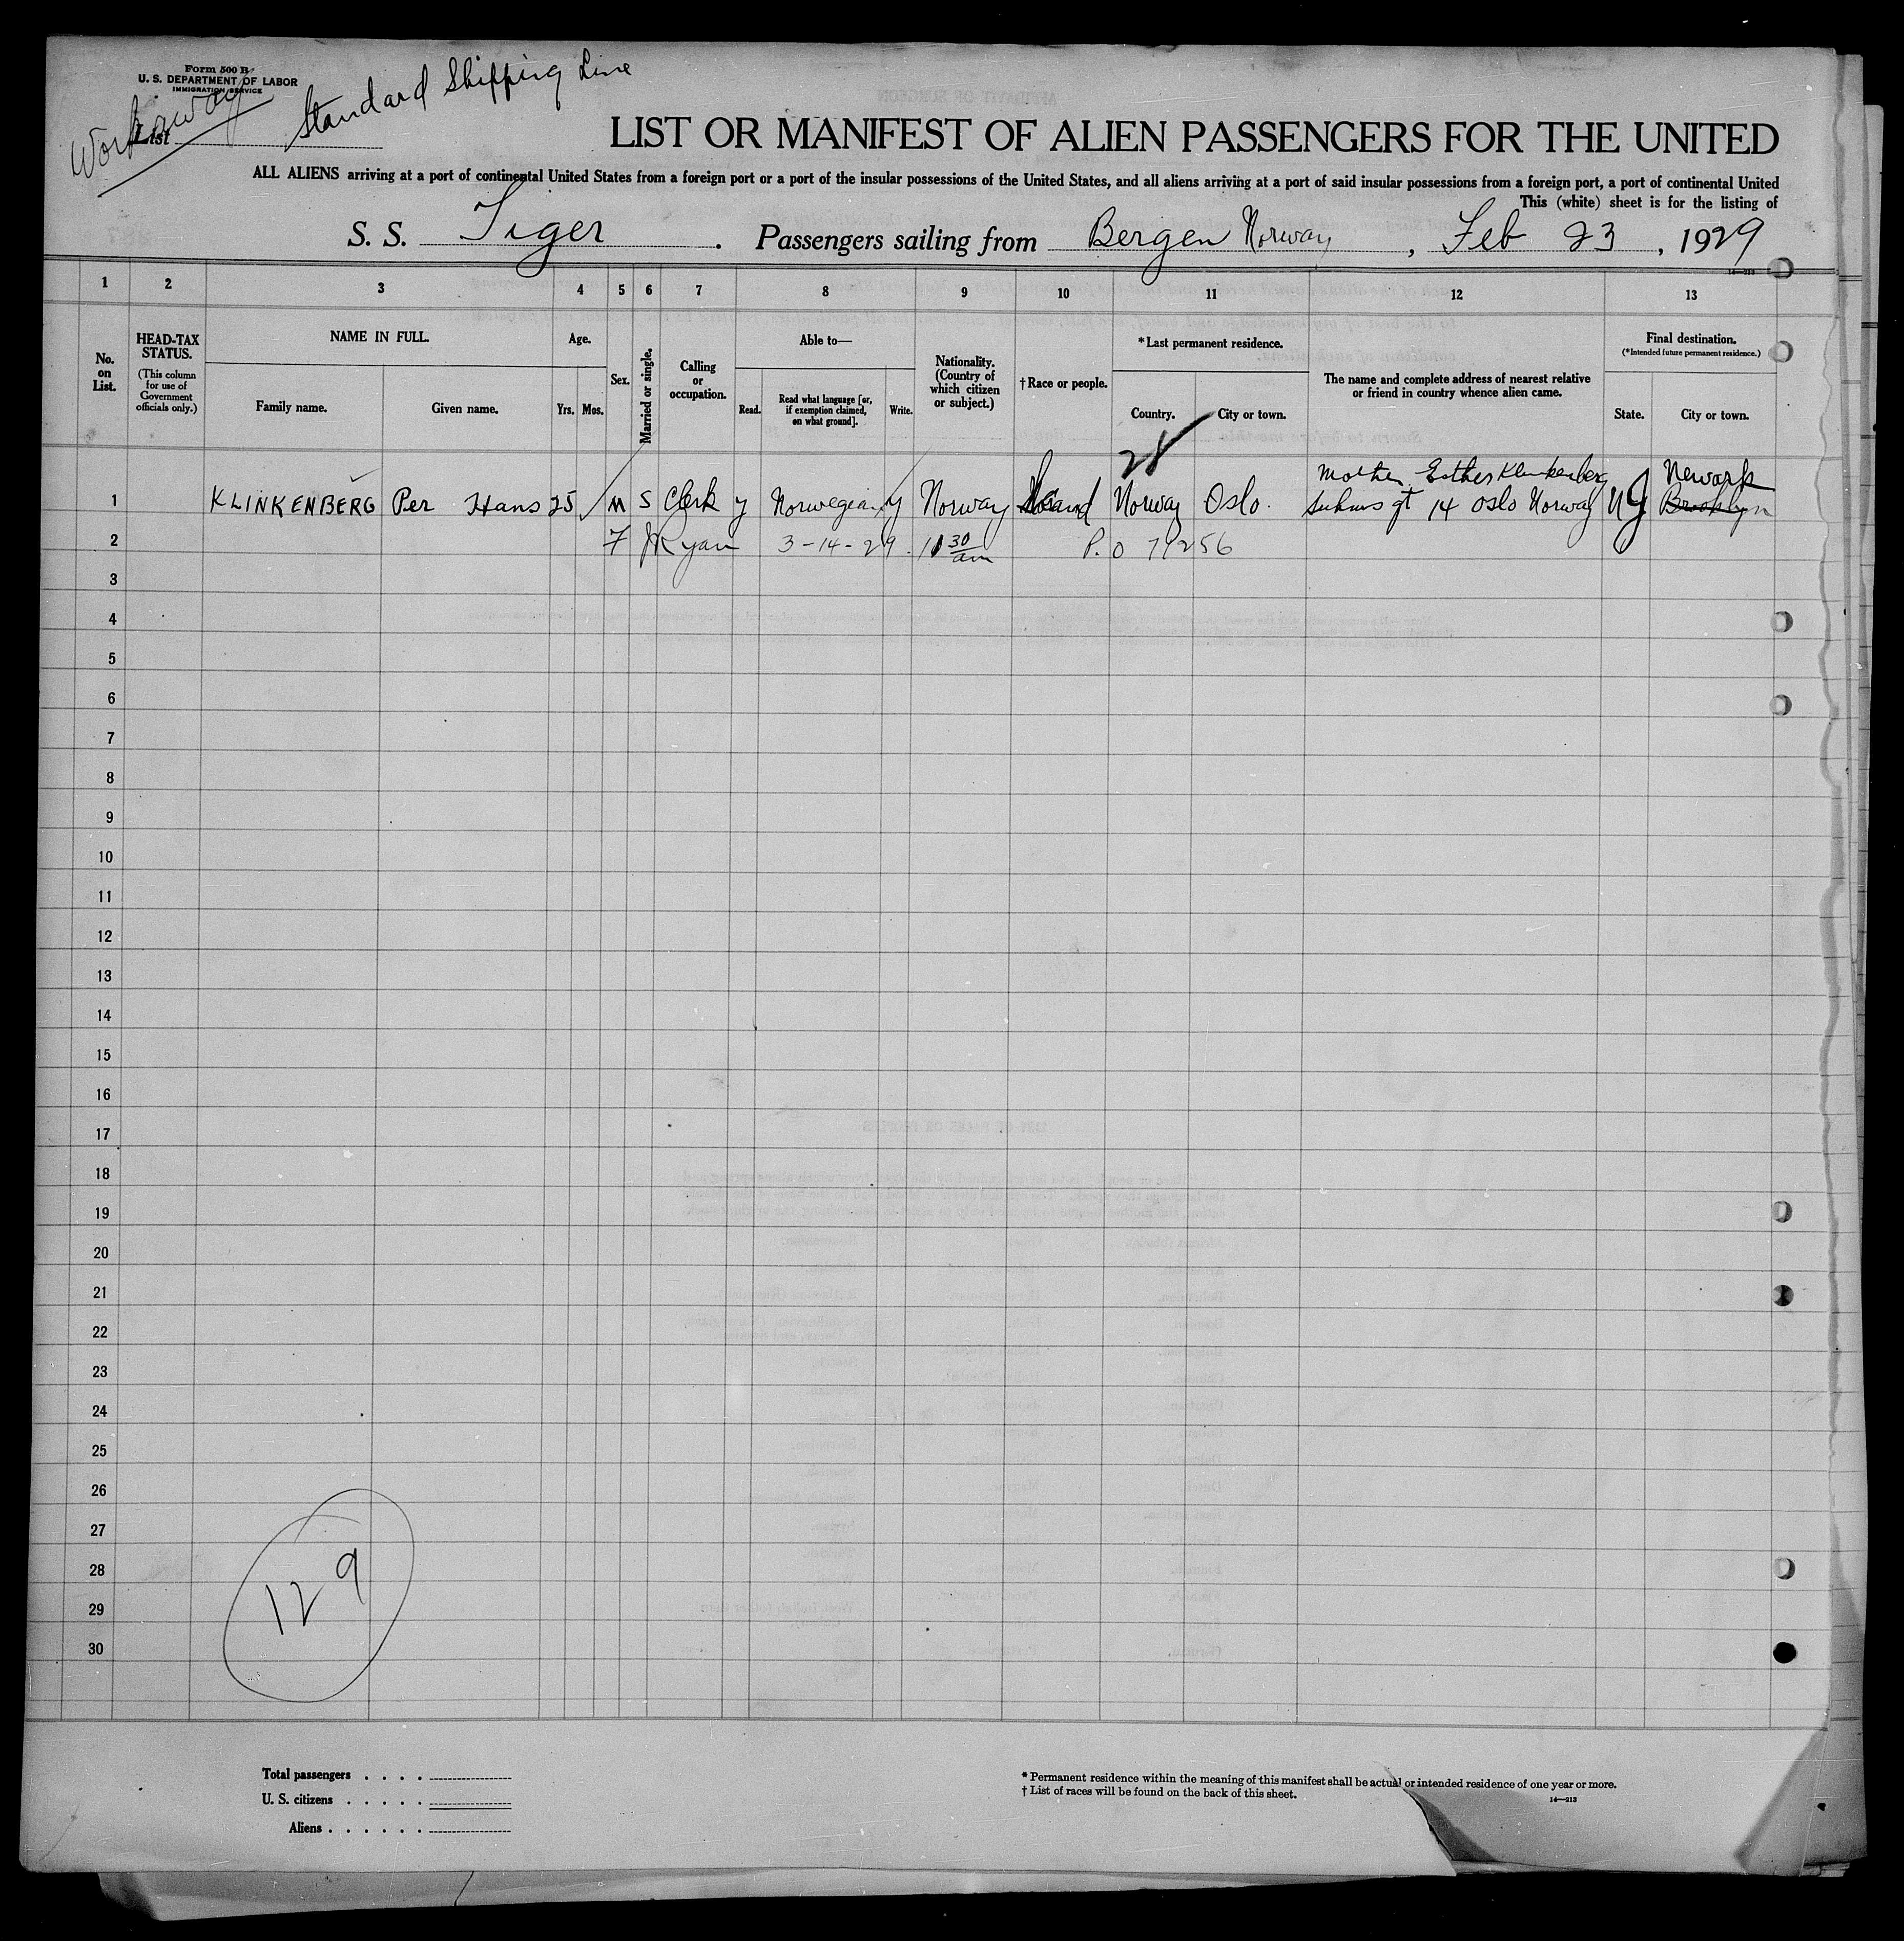 Form 500 B
U. S. DEPARTMENT OF LABOR
IMMIGRATION SERVICE
Workaway
List
Standard Shipping Line
LIST OR MANIFEST OF ALIEN PASSENGERS FOR THE UNITED
ALL ALIENS arriving at a port of continental United States from a foreign port or a port of the insular possessions of the United States, and all aliens arriving at a port of said insular possessions from a foreign port, a port of continental United
This (white) sheet is for the listing of
S. S. Tiger . Passengers sailing from Bergen Norway , Feb 23 , 1929
14—213
1 2 3 4 5 6 7 8 9 10 11 12 13
No. on List.
HEAD-TAX STATUS.
(This column for use of Government officials only.)
NAME IN FULL.
Family name. Given name.
Age.
Yrs. Mos.
Sex.
Married or single.
Calling or occupation.
Able to—
Read. Read what language [or, if exemption claimed, on what ground]. Write.
Nationality. (Country of which citizen or subject.)
† Race or people.
* Last permanent residence.
Country. City or town.
The name and complete address of nearest relative or friend in country whence alien came.
Final destination.
(* Intended future permanent residence.)
State. City or town.
28
mother Esther Klinkenberg Newark
1 KLINKENBERG Per Hans 25 M S Clerk y Norwegian y Norway Scand Norway Oslo. gt 14 Oslo Norway NJ Brooklyn
2 7 Ryan 3-14-29. 11 30 am P.O 71256
3
4
5
6
7
8
9
10
11
12
13
14
15
16
17
18
19
20
21
22
23
24
25
26
27
28
29
30
129
Total passengers . . . .
U. S. citizens . . . . .
Aliens . . . . . .
* Permanent residence within the meaning of this manifest shall be actual or intended residence of one year or more.
† List of races will be found on the back of this sheet.
14—213